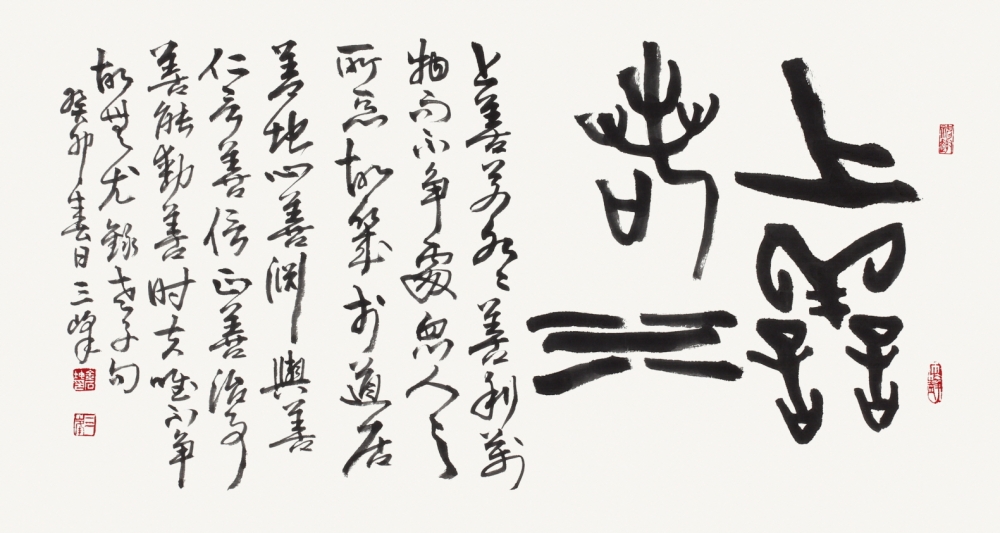 上善
若水
上善若水〻善利萬
物而不争處眾人之
所惡故幾於道居
善地心善淵與善
仁言善信正善治事
善能動善时夫唯不争
故無尤錄老子句
癸卯春日三峰